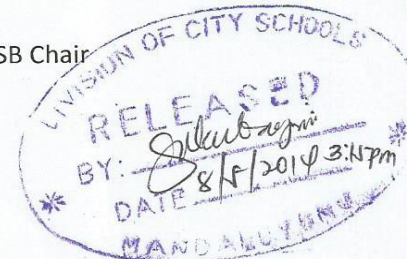 SB Chair
DIVISION OF CITY SCHOOLS
RELEASED
BY:
DATE 8/8/2014 3:15pm
MANDALUYONG